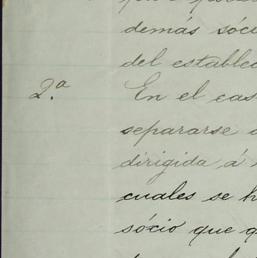 demás sóci
del establec
2.ª En el cas
separarse d
dirigida á
cuales se h
sócio que q